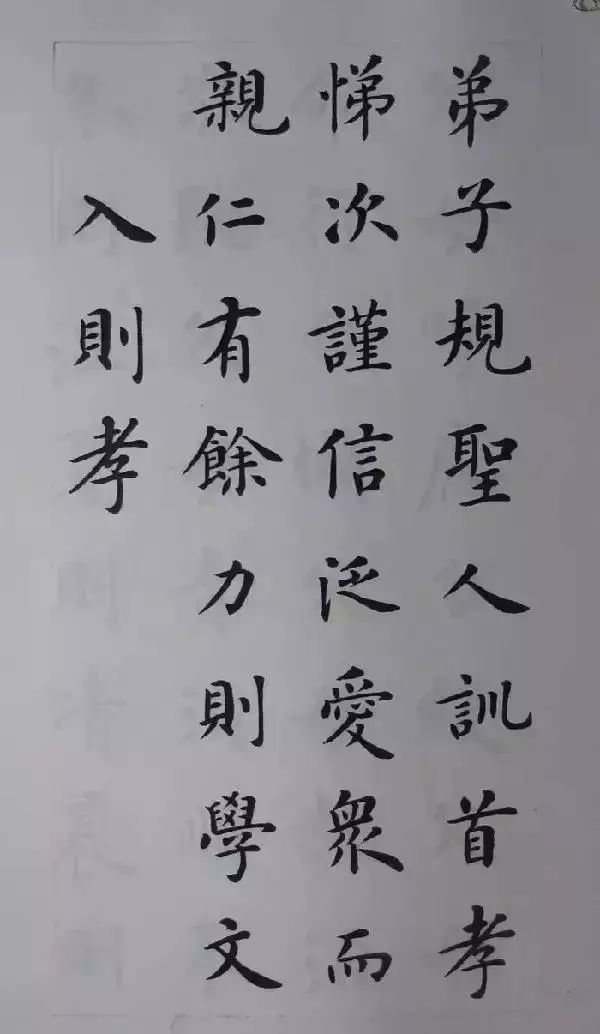 弟子規聖人訓首孝
悌次謹信泛愛衆而
親仁有餘力則學文
入則孝